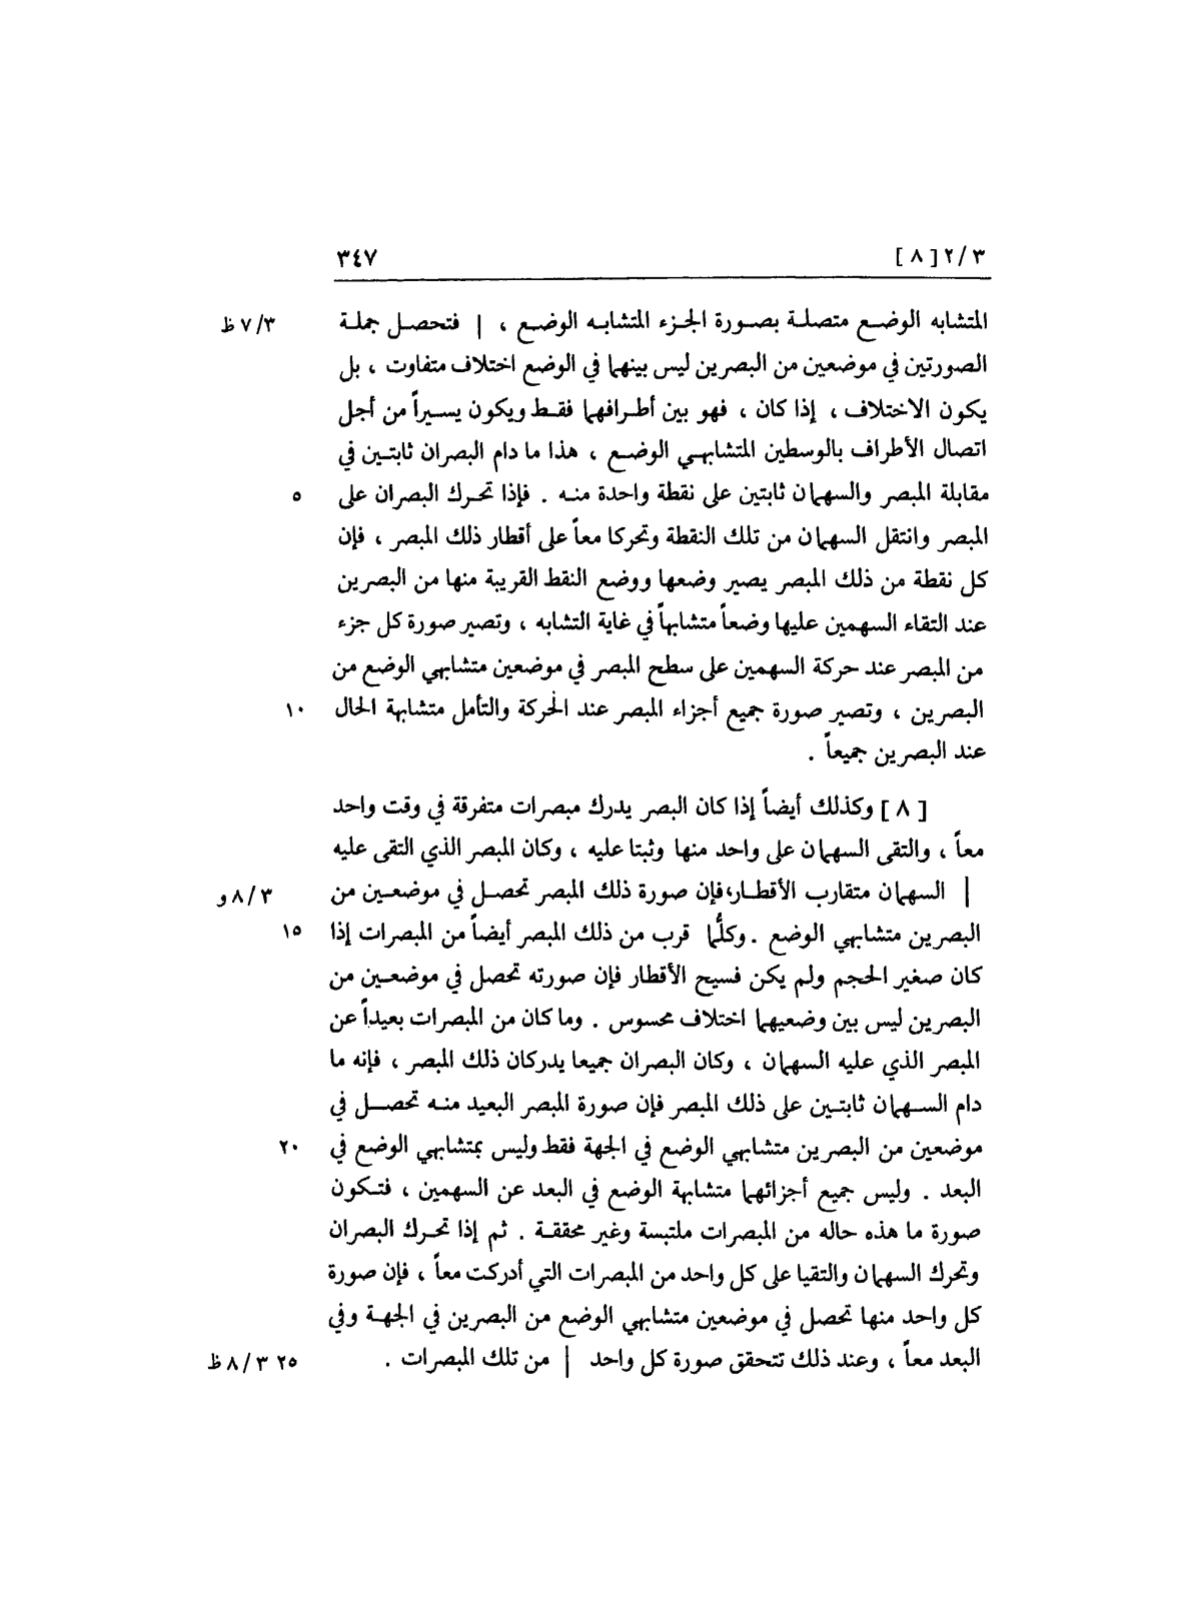 ٢/٣ [ ٨ ] ٣٤٧
المتشابه الوضع متصلة بصورة الجزء المتشابه الوضع ، | فتحصل جملة ٧/٣ ظ
الصورتين في موضعين من البصرين ليس بينهما في الوضع اختلاف متفاوت ، بل
يكون الاختلاف ، إذا كان ، فهو بين أطرافهما فقط ويكون يسيراً من أجل
اتصال الأطراف بالوسطين المتشابهي الوضع ، هذا ما دام البصران ثابتين في
مقابلة المبصر والسهمان ثابتين على نقطة واحدة منه . فإذا تحرك البصران على ٥
المبصر وانتقل السهمان من تلك النقطة وتحركا معاً على أقطار ذلك المبصر ، فإن
كل نقطة من ذلك المبصر يصير وضعها ووضع النقط القريبة منها من البصرين
عند التقاء السهمين عليها وضعاً متشابهاً في غاية التشابه ، وتصير صورة كل جزء
من المبصر عند حركة السهمين على سطح المبصر في موضعين متشابهي الوضع من
البصرين ، وتصير صورة جميع أجزاء المبصر عند الحركة والتأمل متشابهة الحال ١٠
عند البصرين جميعاً .
[ ٨ ] وكذلك أيضاً إذا كان البصر يدرك مبصرات متفرقة في وقت واحد
معاً ، والتقى السهمان على واحد منها وثبتا عليه ، وكان المبصر الذي التقى عليه
| السهمان متقارب الأقطار، فإن صورة ذلك المبصر تحصل في موضعين من ٨/٣ و
البصرين متشابهي الوضع . وكلُّما قرب من ذلك المبصر أيضاً من المبصرات إذا ١٥
كان صغير الحجم ولم يكن فسيح الأقطار فإن صورته تحصل في موضعين من
البصرين ليس بين وضعيهما اختلاف محسوس . وما كان من المبصرات بعيداً عن
المبصر الذي عليه السهمان ، وكان البصران جميعا يدركان ذلك المبصر ، فإنه ما
دام السهمان ثابتين على ذلك المبصر فإن صورة المبصر البعيد منه تحصل في
موضعين من البصرين متشابهي الوضع في الجهة فقط وليس بمتشابهي الوضع في ٢٠
البعد . وليس جميع أجزائهما متشابهة الوضع في البعد عن السهمين ، فتكون
صورة ما هذه حاله من المبصرات ملتبسة وغير محققة . ثم إذا تحرك البصران
وتحرك السهمان والتقيا على كل واحد من المبصرات التي أدركت معاً ، فإن صورة
كل واحد منها تحصل في موضعين متشابهي الوضع من البصرين في الجهة وفي
البعد معاً ، وعند ذلك تتحقق صورة كل واحد | من تلك المبصرات . ٢٥ ٨/٣ ظ